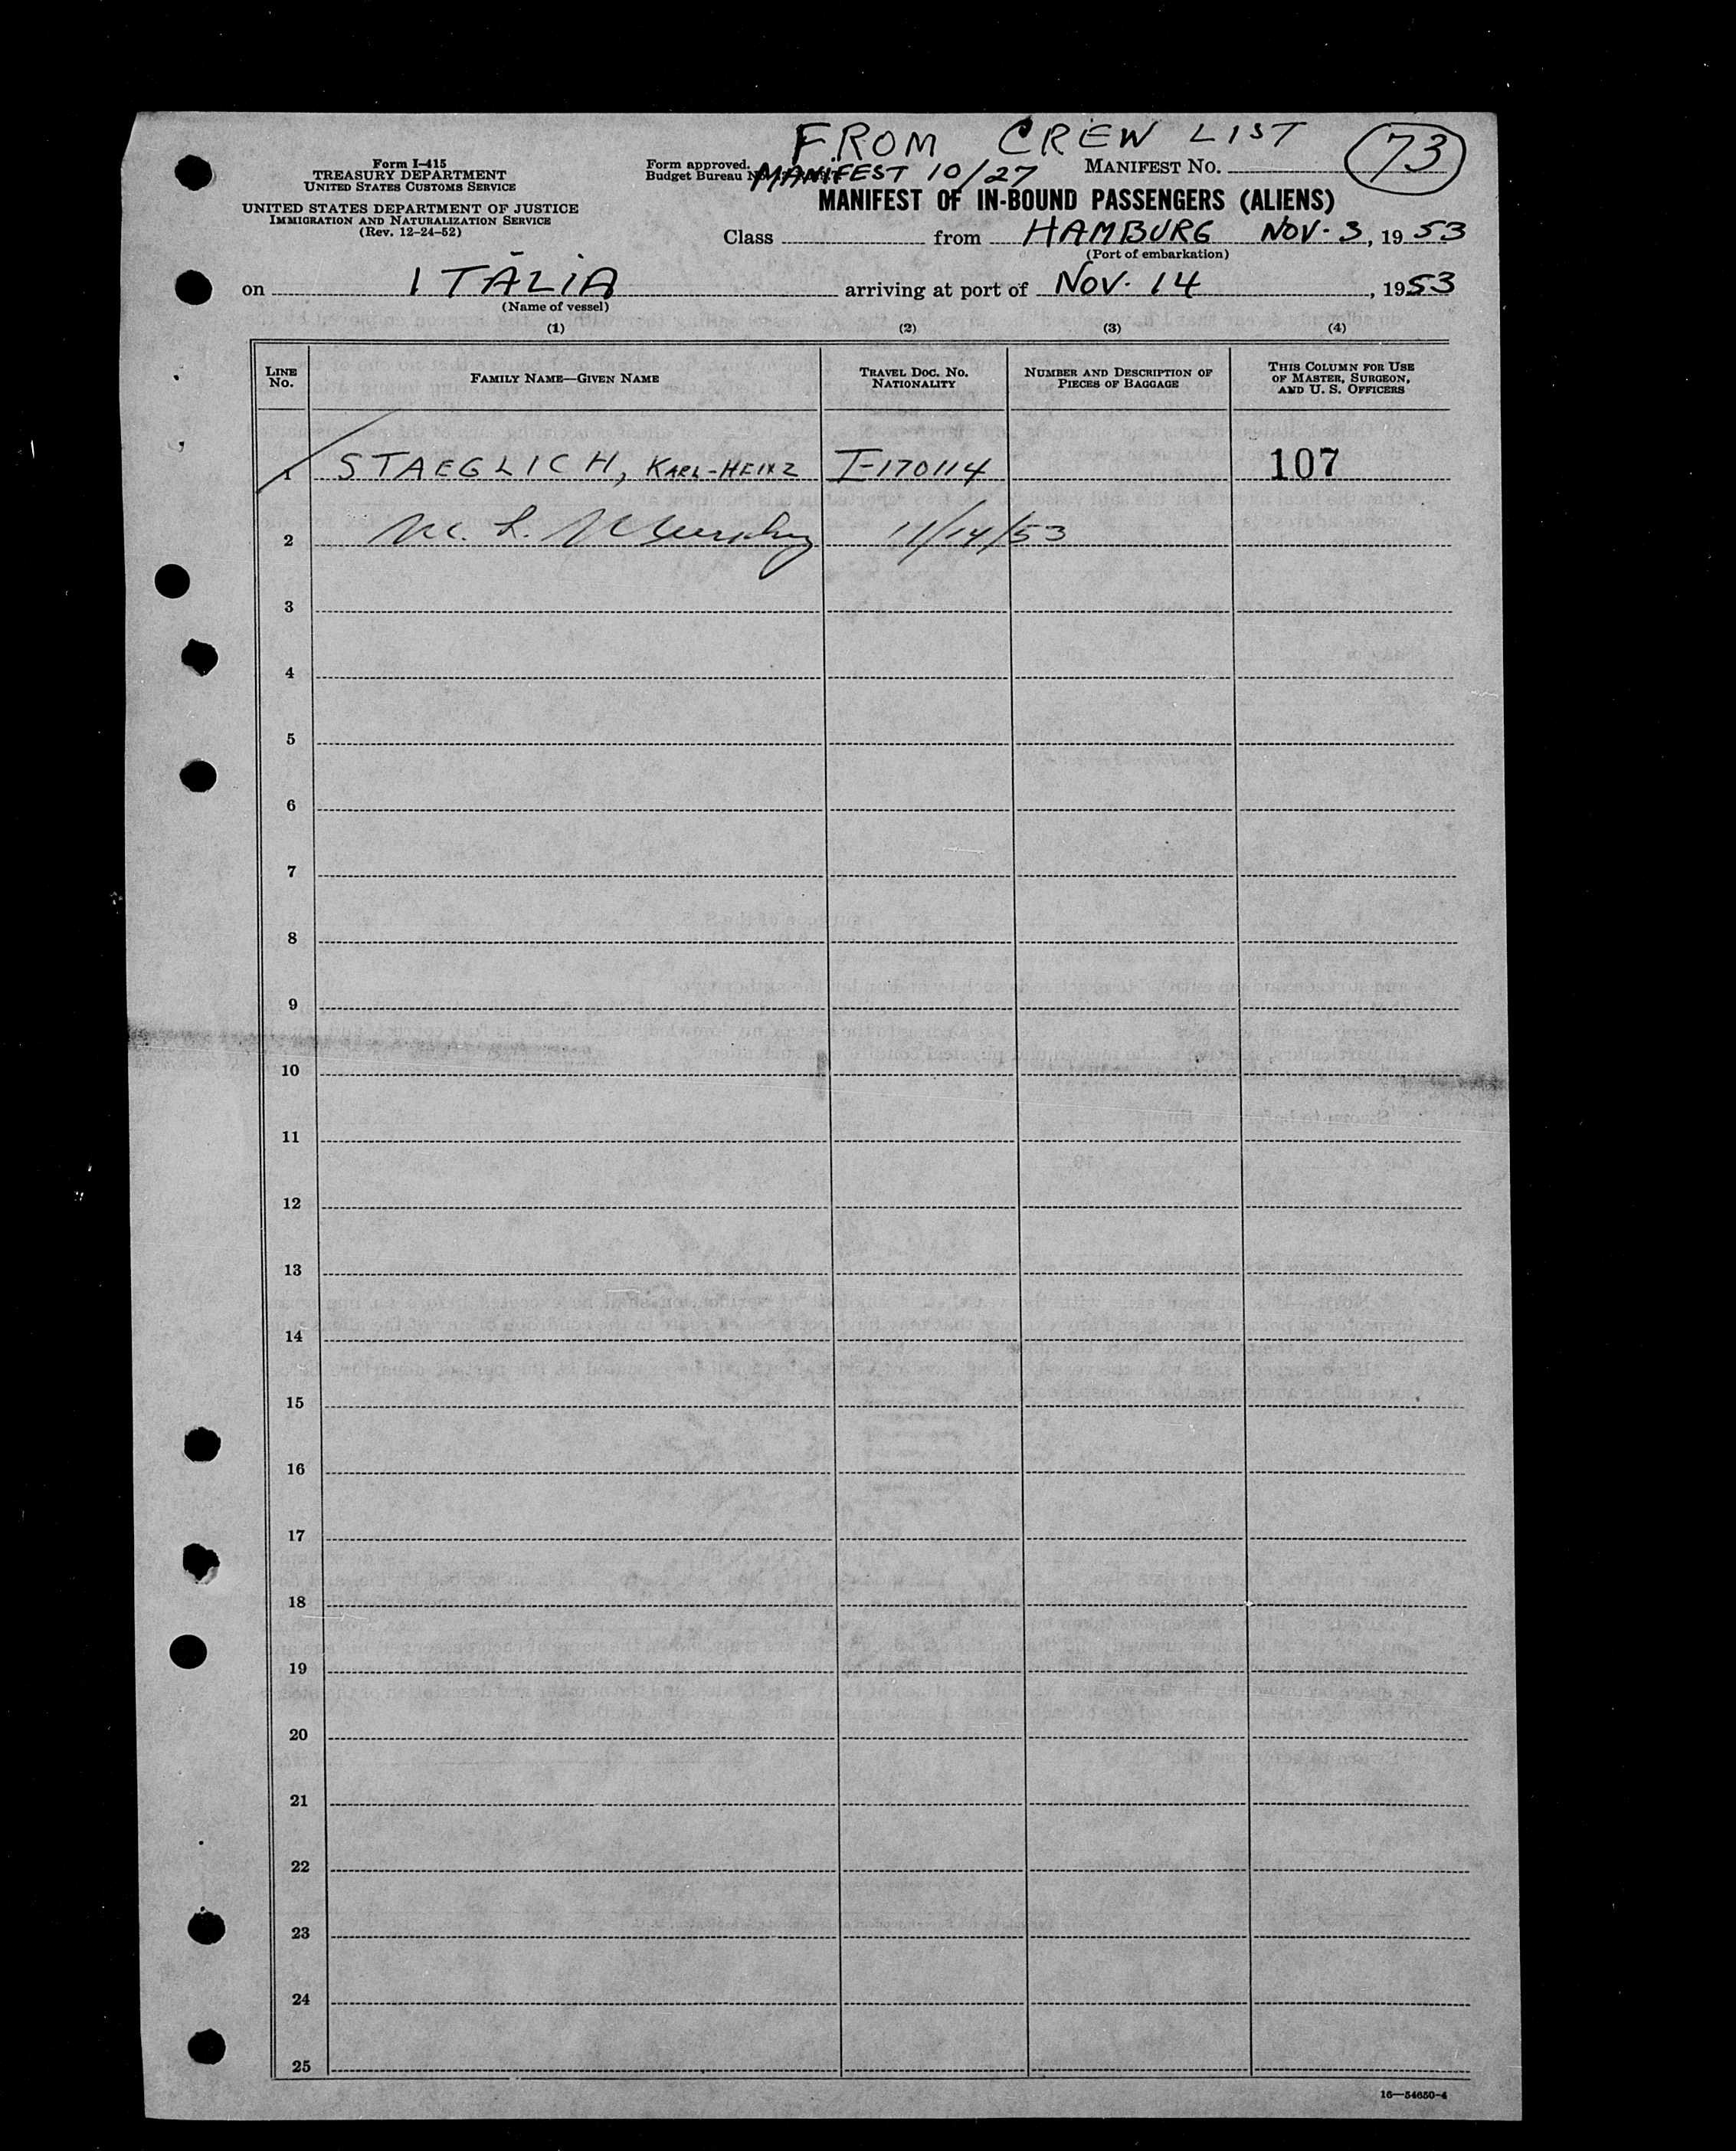 FROM CREW LIST
Form I-415
TREASURY DEPARTMENT
UNITED STATES CUSTOMS SERVICE
UNITED STATES DEPARTMENT OF JUSTICE
IMMIGRATION AND NATURALIZATION SERVICE
(Rev. 12-24-52)
Form approved.
Budget Bureau
MANIFEST 10/27
MANIFEST NO. 73
MANIFEST OF IN-BOUND PASSENGERS (ALIENS)
Class from HAMBURG NOV. 3, 1953
(Port of embarkation)
on ITALIA arriving at port of NOV. 14, 1953
(Name of vessel)
(1) (2) (3) (4)
LINE NO. FAMILY NAME—GIVEN NAME TRAVEL DOC. NO. NATIONALITY NUMBER AND DESCRIPTION OF PIECES OF BAGGAGE THIS COLUMN FOR USE OF MASTER, SURGEON, AND U. S. OFFICERS
1 STAEGLICH, KARL-HEINZ I-170114 107
2 M. L. Murphy 11/14/53
3
4
5
6
7
8
9
10
11
12
13
14
15
16
17
18
19
20
21
22
23
24
25
16—54650-4